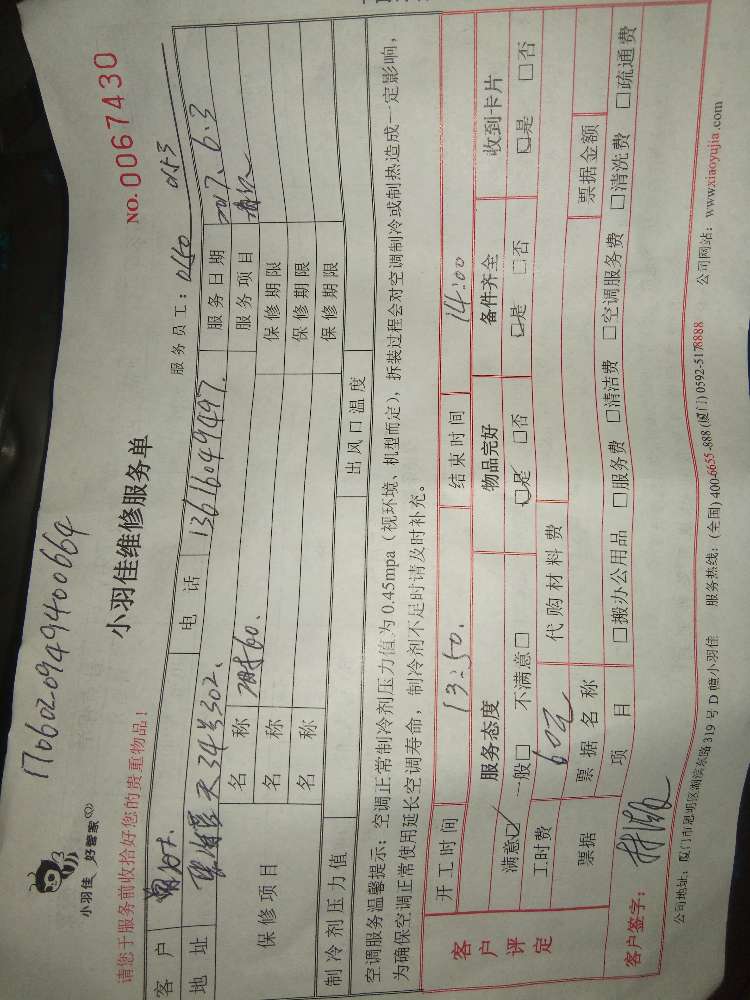 170602094940066​4
小羽佳 好管家
小羽佳维修服务单
NO.0067430
请您于服务前收拾好您的贵重物品！
服务员工：0150 0153
客户
电话 13616049497.
服务日期 2017.6.3
地址 34号302.
服务项目
保修项目
名称
保修期限
名称
保修期限
名称
保修期限
制冷剂压力值
出风口温度
空调服务温馨提示：空调正常制冷剂压力值为0.45mpa（视环境、机型而定），拆装过程会对空调制冷或制热造成一定影响，
为确保空调正常使用延长空调寿命，制冷剂不足时请及时补充。
客户评定
开工时间 13:50.
结束时间 14:00
服务态度
物品完好
备件齐全
收到卡片
满意☑ 一般□ 不满意□
☑是 □否
☑是 □否
☑是 □否
工时费 60元
代购材料费
票据
票据名称
票据金额
项目
□搬办公用品 □服务费 □清洁费 □空调服务费 □清洗费 □疏通费
客户签字：
公司地址：厦门市思明区湖滨东路319号D幢小羽佳 服务热线：(全国) 400-6655-888 (厦门) 0592-5178888 公司网站：www.xiaoyujia.com